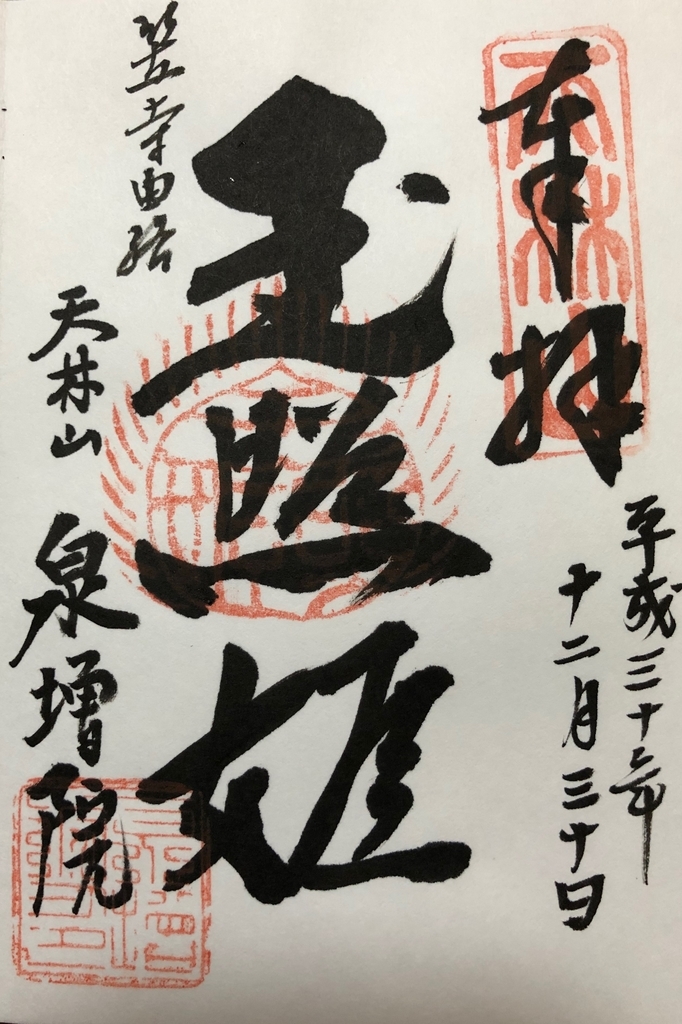 奉拝
平成三十年
十二月三十日
玉照姫
笠寺由緒
天林山
泉増院